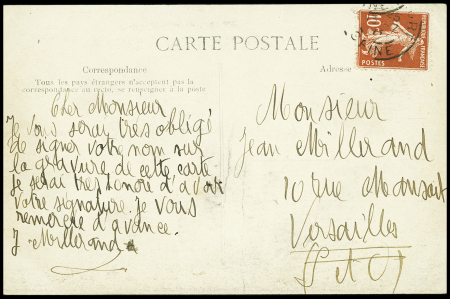 CARTE POSTALE
Correspondance
Tous les pays étrangers n'acceptent pas la
correspondance au recto, se renseigner à la poste
Adresse
10
POSTES
Cher Monsieur
Je vous serai très obligé
de signer votre nom sur
la gravure de cette carte
je serai très honoré d'avoir
votre signature. Je vous
remercie d'avance.
J Millerand
Monsieur
Jean Millerand
10 rue Mansart
Versailles
S et O